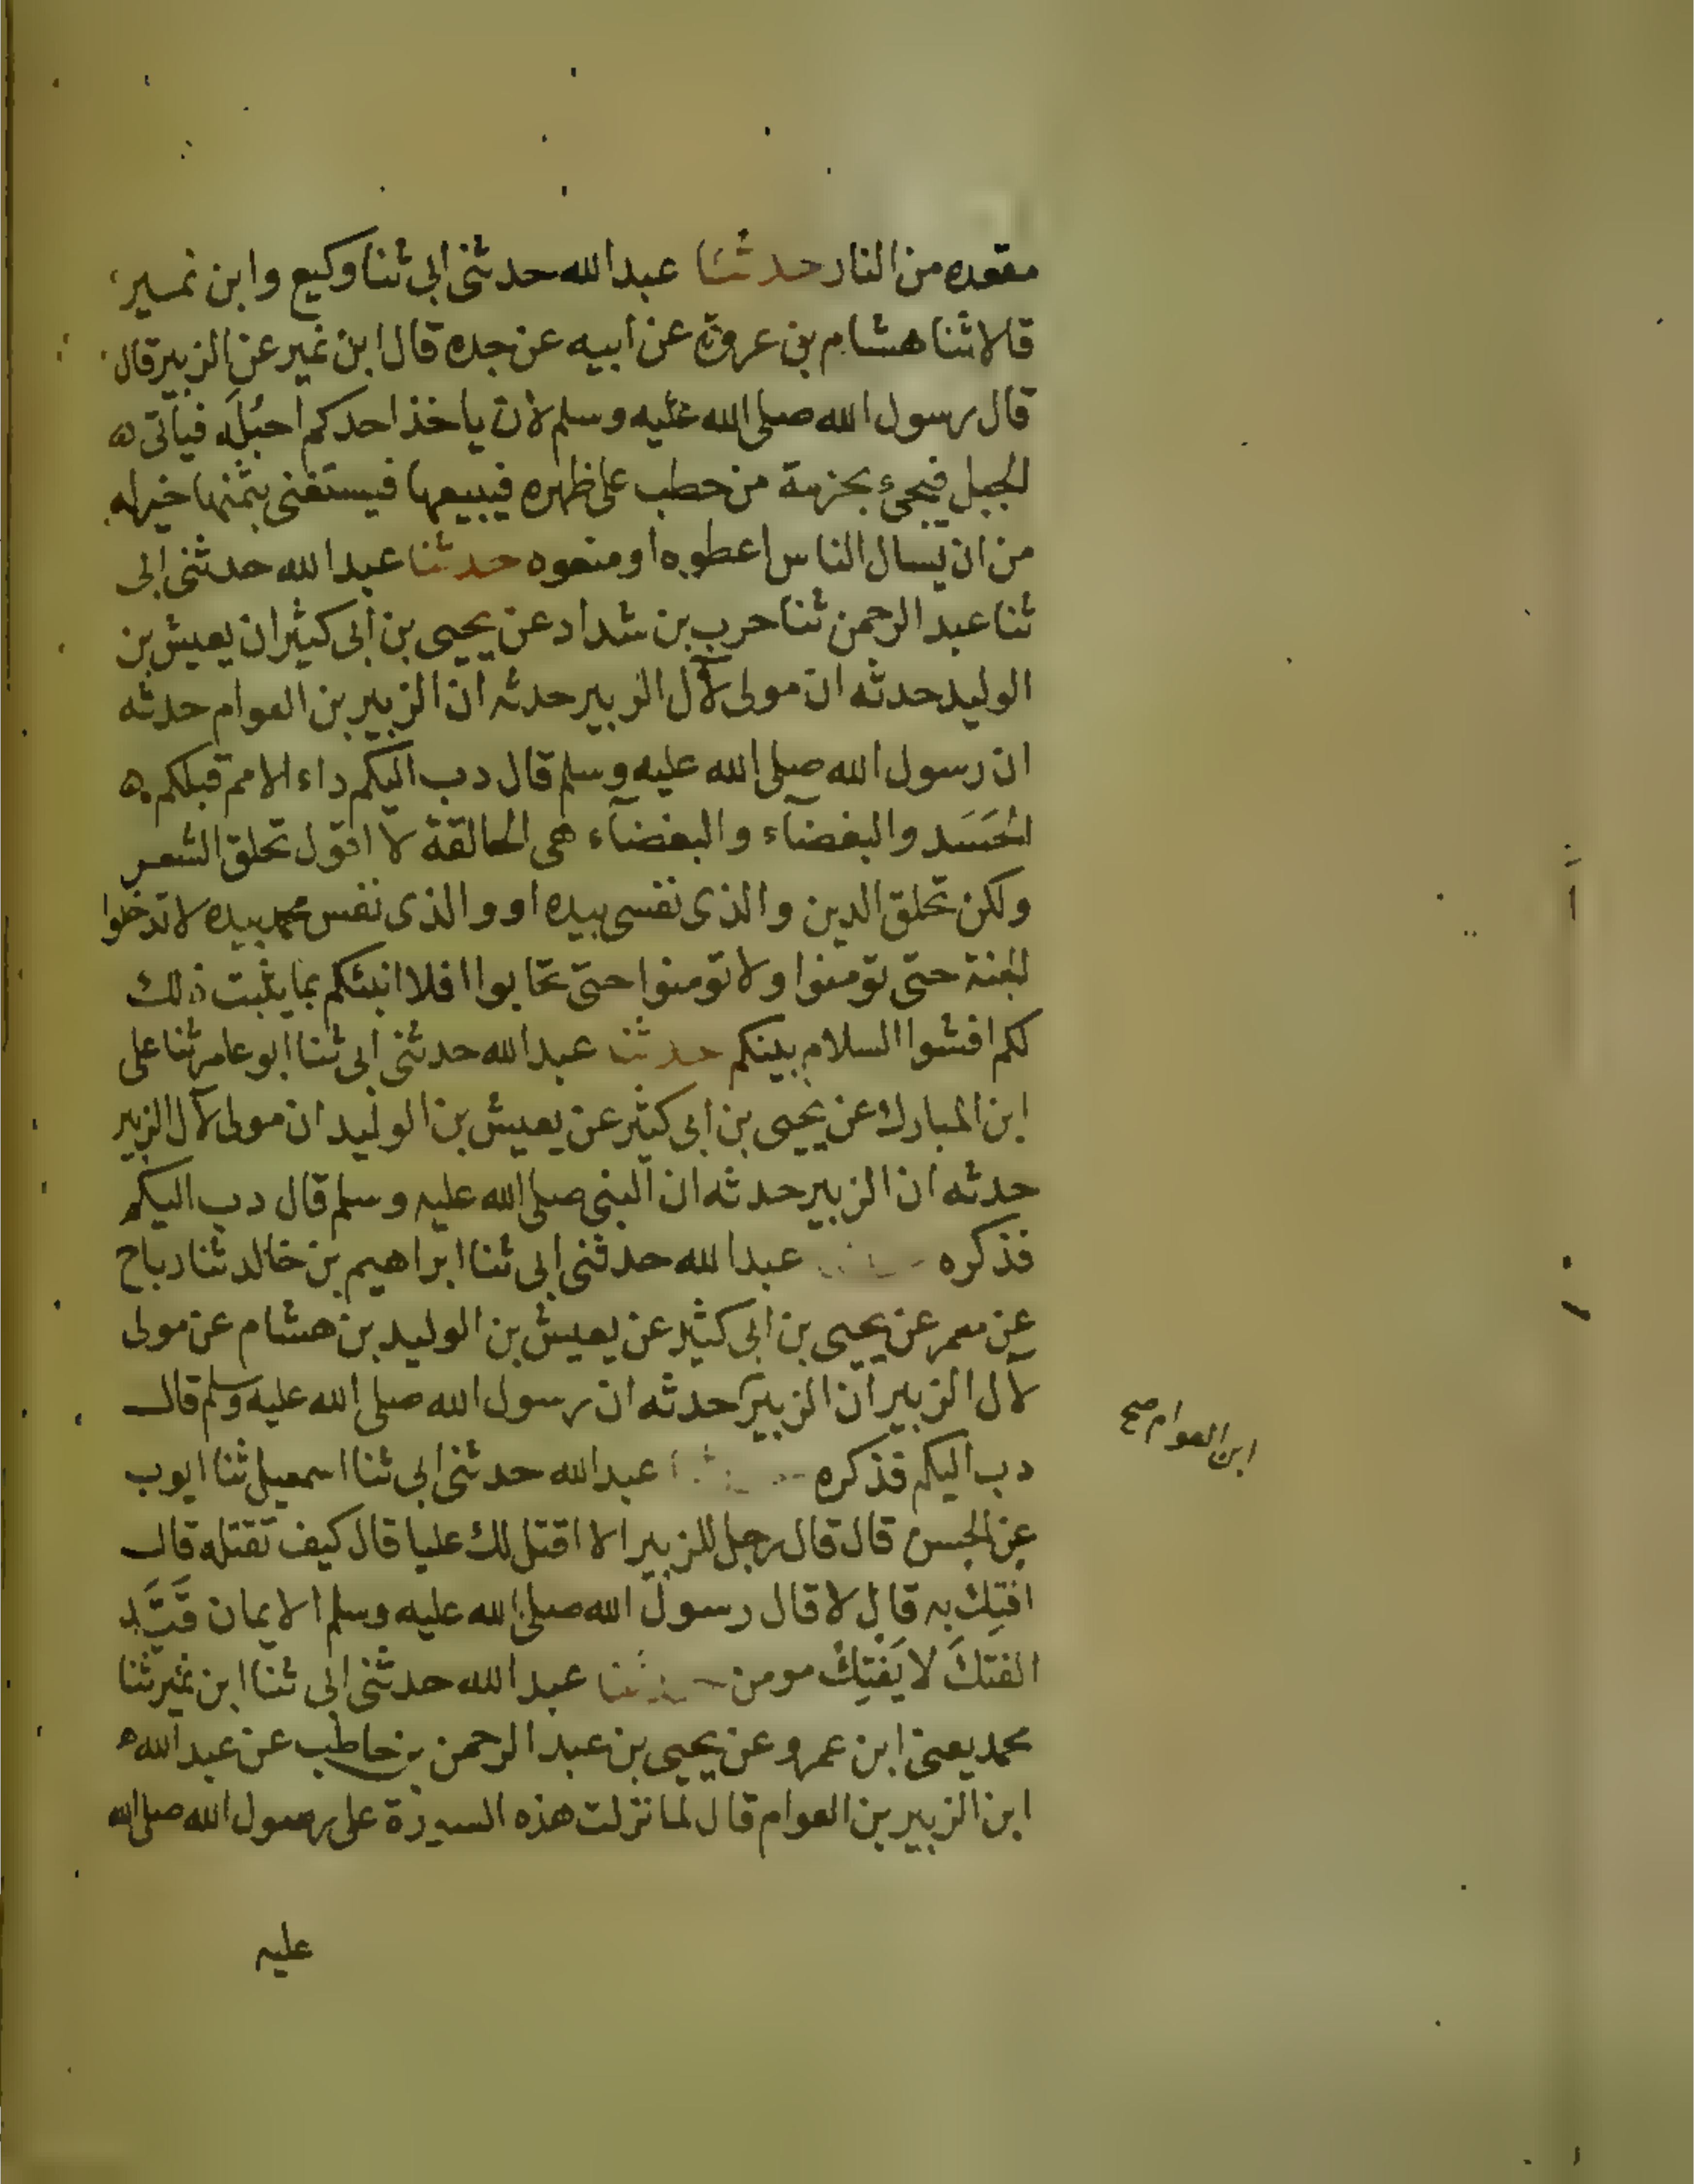 مقعده من النار حدثنا عبد الله حدثنى ابى ثنا وكيع وابن نمير
قالا ثنا هشام بن عروة عن ابيه عن جده قال ابن نمير عن الزبير قال
قال رسول الله صلى الله عليه وسلم لان ياخذ احدكم احبُلَه فياتى
الجبل فيجئ بحزمة من حطب على ظهره فيبيعها فيستغنى بثمنها خير له
من ان يسال الناس اعطوه او منعوه حدثنا عبد الله حدثنى ابى
ثنا عبد الرحمن ثنا حرب بن شداد عن يحيى بن ابى كثير ان يعيش بن
الوليد حدثه ان مولى لآل الزبير حدثه ان الزبير بن العوام حدثه
ان رسول الله صلى الله عليه وسلم قال دب اليكم داء الامم قبلكم
الحَسَد والبغضآء والبغضآء هى الحالقة لا اقول تحلق الشعر
ولكن تحلق الدين والذى نفسى بيده او والذى نفس محمد بيده لا تدخلوا
الجنة حتى تومنوا ولا تومنوا حتى تحابوا افلا انبئكم بما يثبت ذلك
لكم افشوا السلام بينكم حدثنا عبد الله حدثنى ابى ثنا ابو عامر ثنا على
ابن المبارك عن يحيى بن ابى كثير عن يعيش بن الوليد ان مولى لآل الزبير
حدثه ان الزبير حدثه ان النبى صلى الله عليه وسلم قال دب اليكم
فذكره عبد الله حدثنى ابى ثنا ابراهيم بن خالد ثنا رباح
عن معمر عن يحيى بن ابى كثير عن يعيش بن الوليد بن هشام عن مولى
لآل الزبير ان الزبير حدثه ان رسول الله صلى الله عليه وسلم قال
ابن العوام صح
دب اليكم فذكره عبد الله حدثنى ابى ثنا اسمعيل ثنا ايوب
عن الحسن قال قال رجل للزبير الا اقتل لك عليا قال كيف تقتله قال
افتِك به قال لا قال رسول الله صلى الله عليه وسلم الايمان قَيَّد
الفتكَ لا يَفْتِكُ مومن حدثنا عبد الله حدثنى ابى ثنا ابن نمير ثنا
محمد يعنى ابن عمرو عن يحيى بن عبد الرحمن بن حاطب عن عبد الله
ابن الزبير بن العوام قال لما نزلت هذه السورة على رسول الله صلى الله
عليه